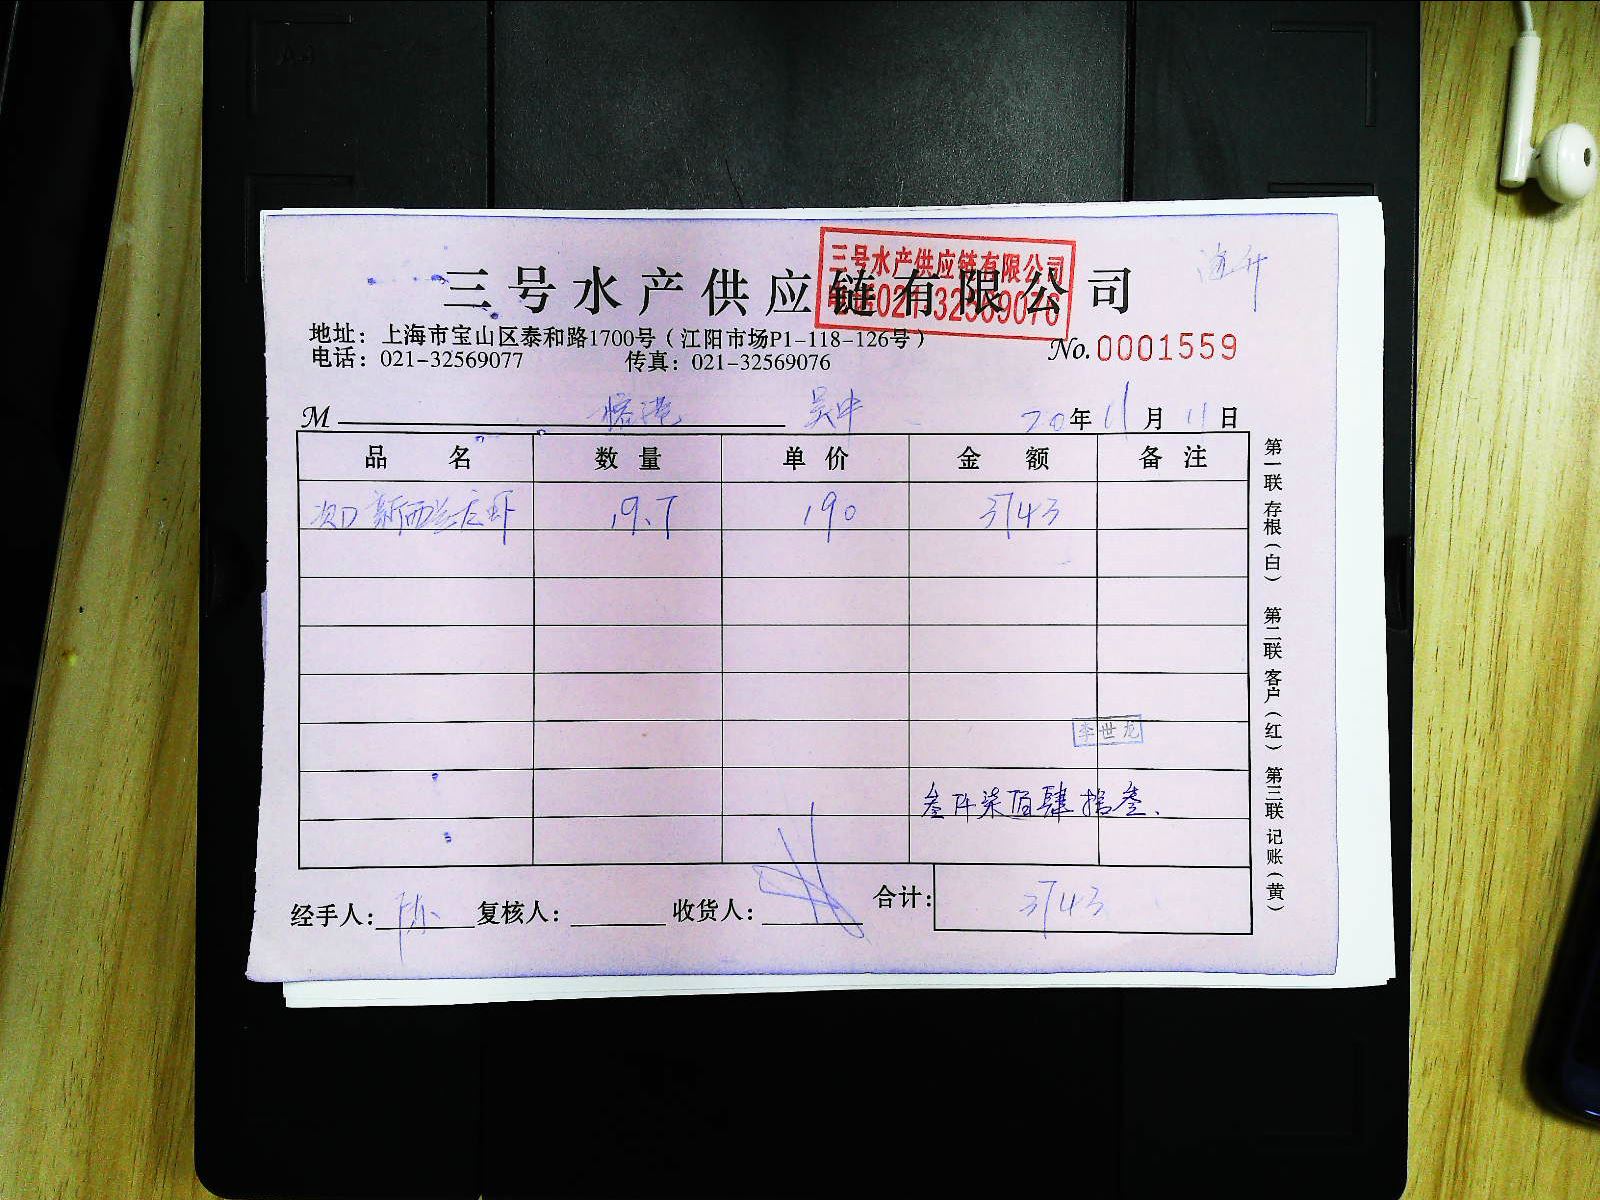 三号水产供应链有限公司
三号水产供应链有限公司
电话021-32569076
地址：上海市宝山区泰和路1700号（江阳市场P1-118-126号）
电话：021-32569077 传真：021-32569076
No.0001559
M 吴中 20年11月11日
品名 数量 单价 金额 备注
新西兰 19.7 190 3743
李世龙
叁仟柒佰肆拾叁.
合计：3743
经手人：陈 复核人： 收货人：
第一联 存根（白） 第二联 客户（红） 第三联 记账（黄）